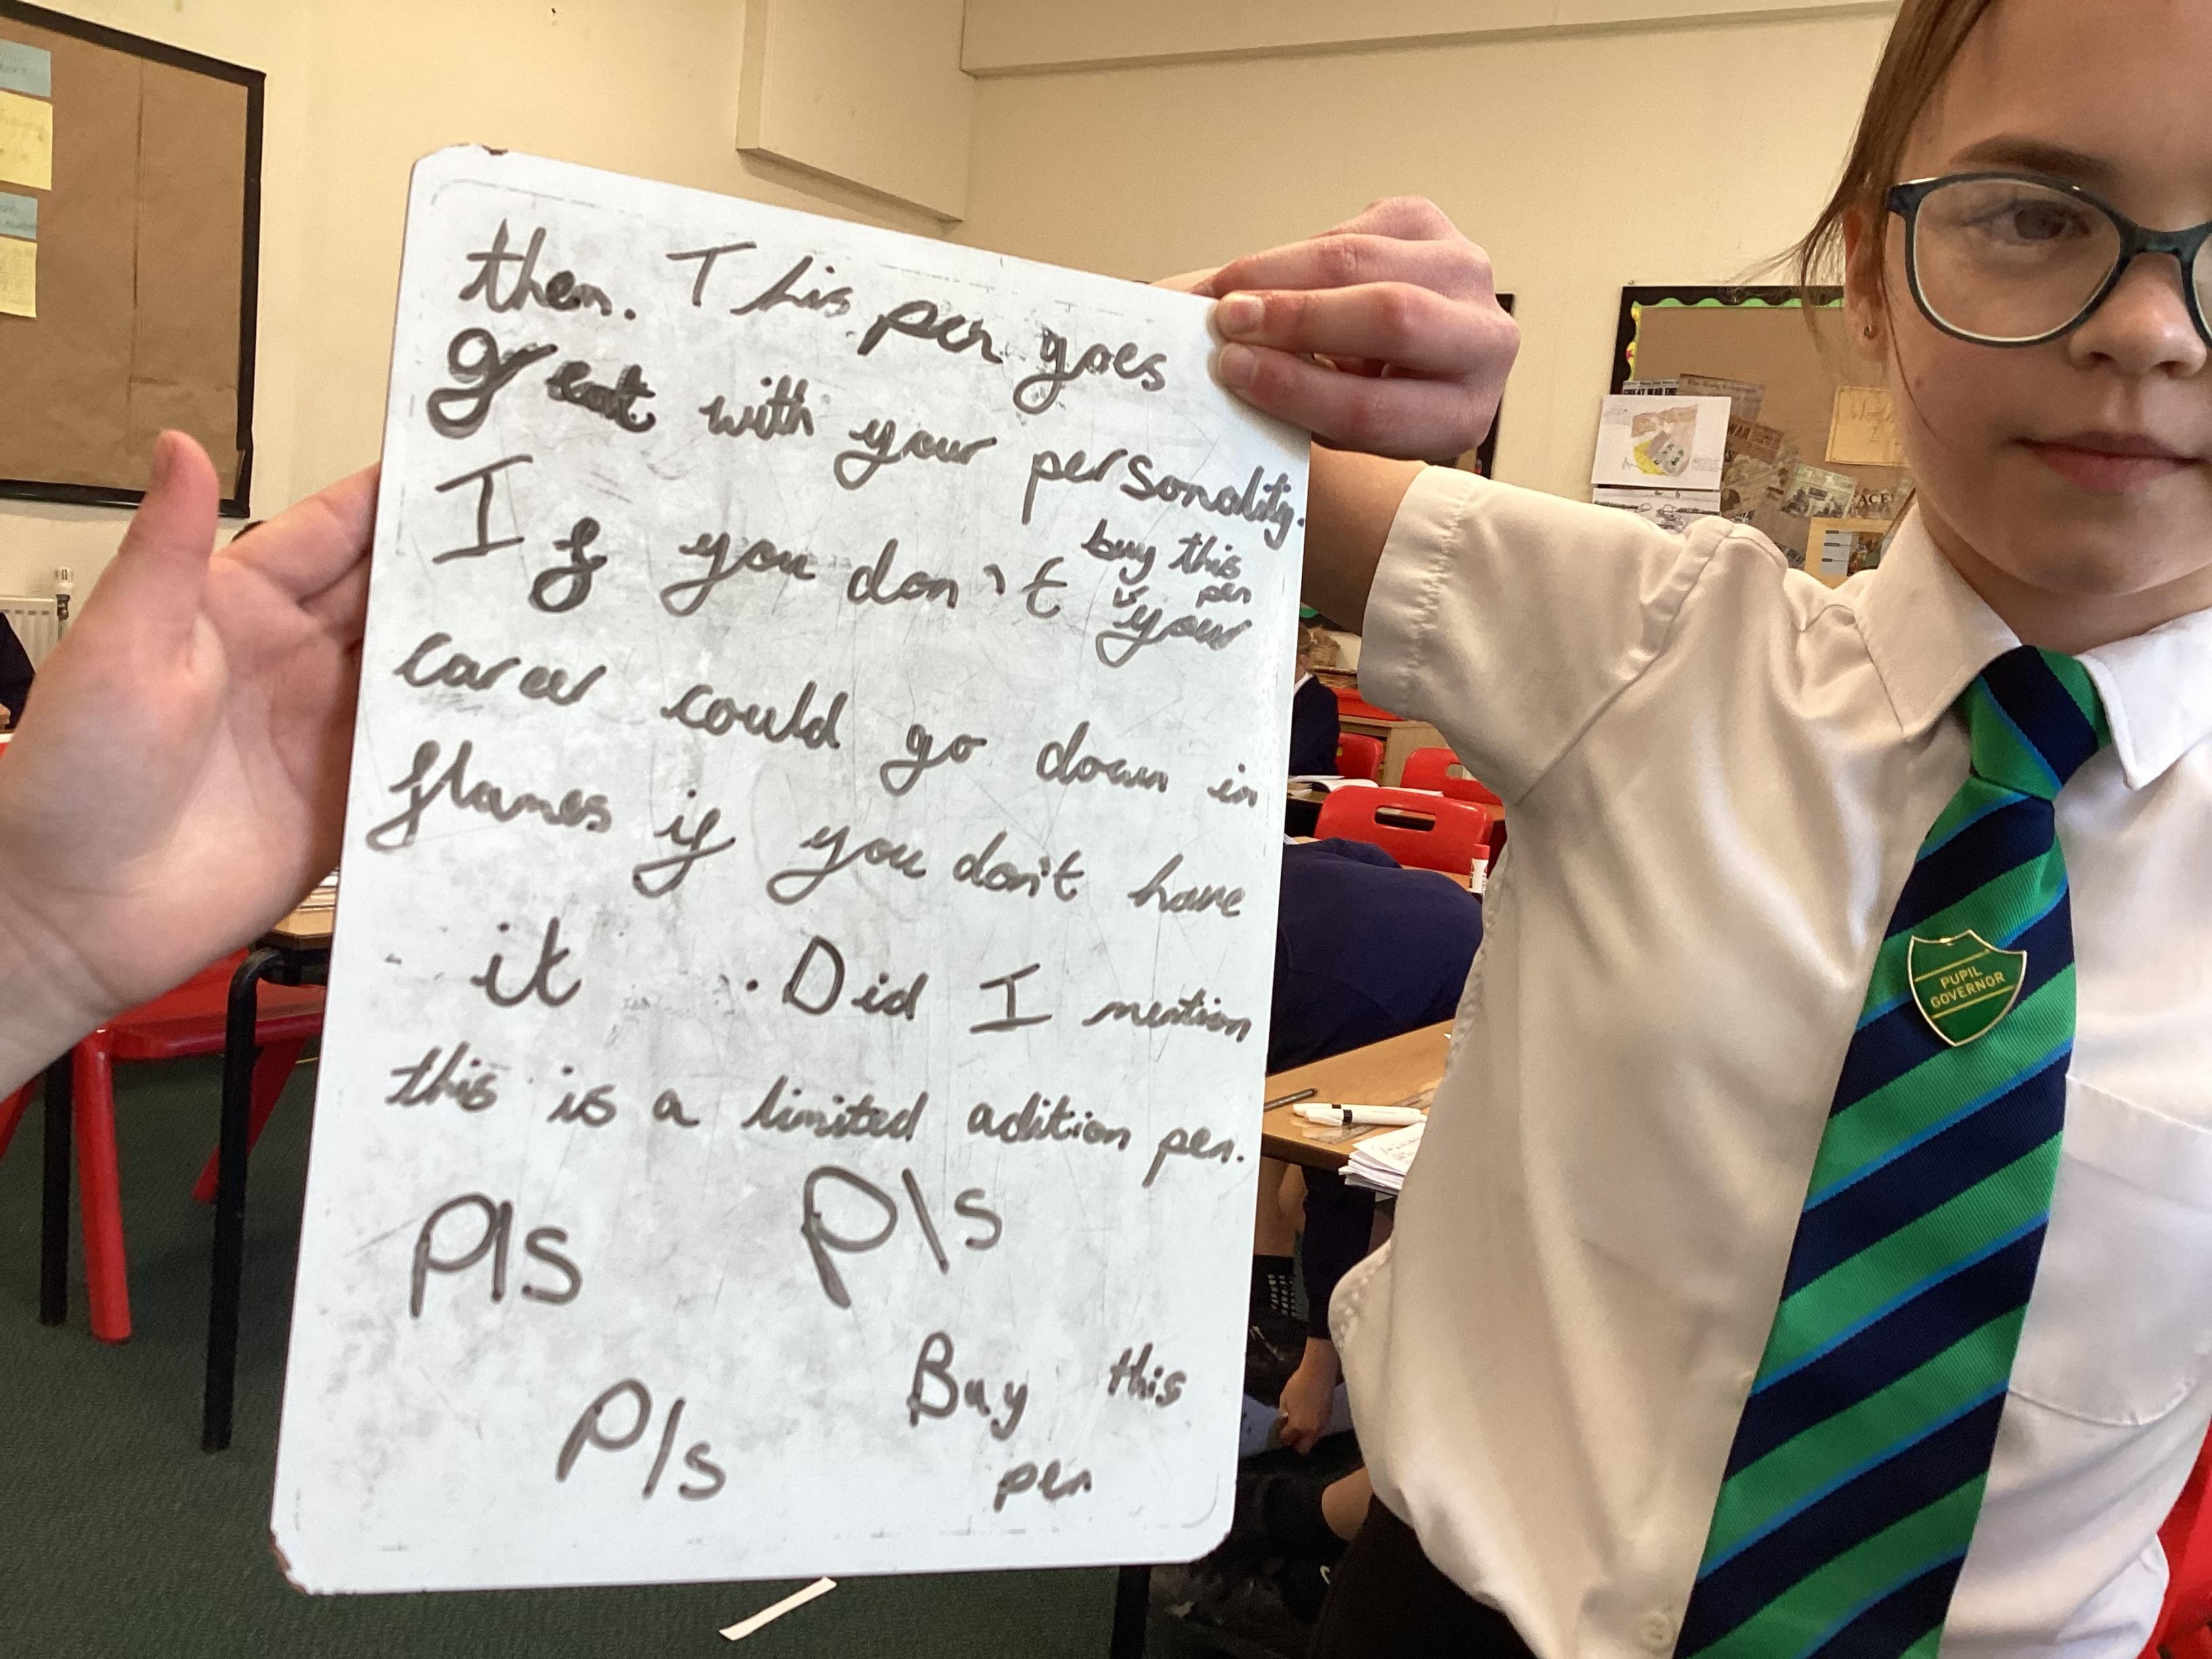 then. This pen goes
great with your personality.
If you don't buy this pen your
career could go down in
flames if you don't have
it. Did I mention
this is a limited adition pen.
Pls Pls
Pls Buy this
pen
PUPIL
GOVERNOR